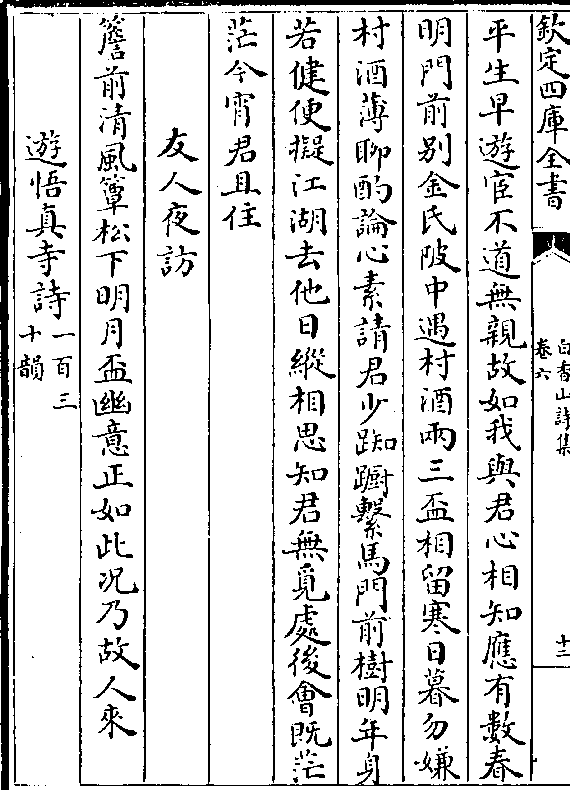 欽定四庫全書
白香山詩集
卷六
十二
平生早遊宦不道無親故如我與君心相知應有數春
明門前别金氏陂中遇村酒兩三盃相留寒日暮勿嫌
村酒薄聊酌論心素請君少踟蹰繫馬門前樹明年身
若健便擬江湖去他日縱相思知君無覓處後會既茫
茫今宵君且住
友人夜訪
簷前清風簟松下明月盃幽意正如此况乃故人來
遊悟真寺詩一百三
十韻